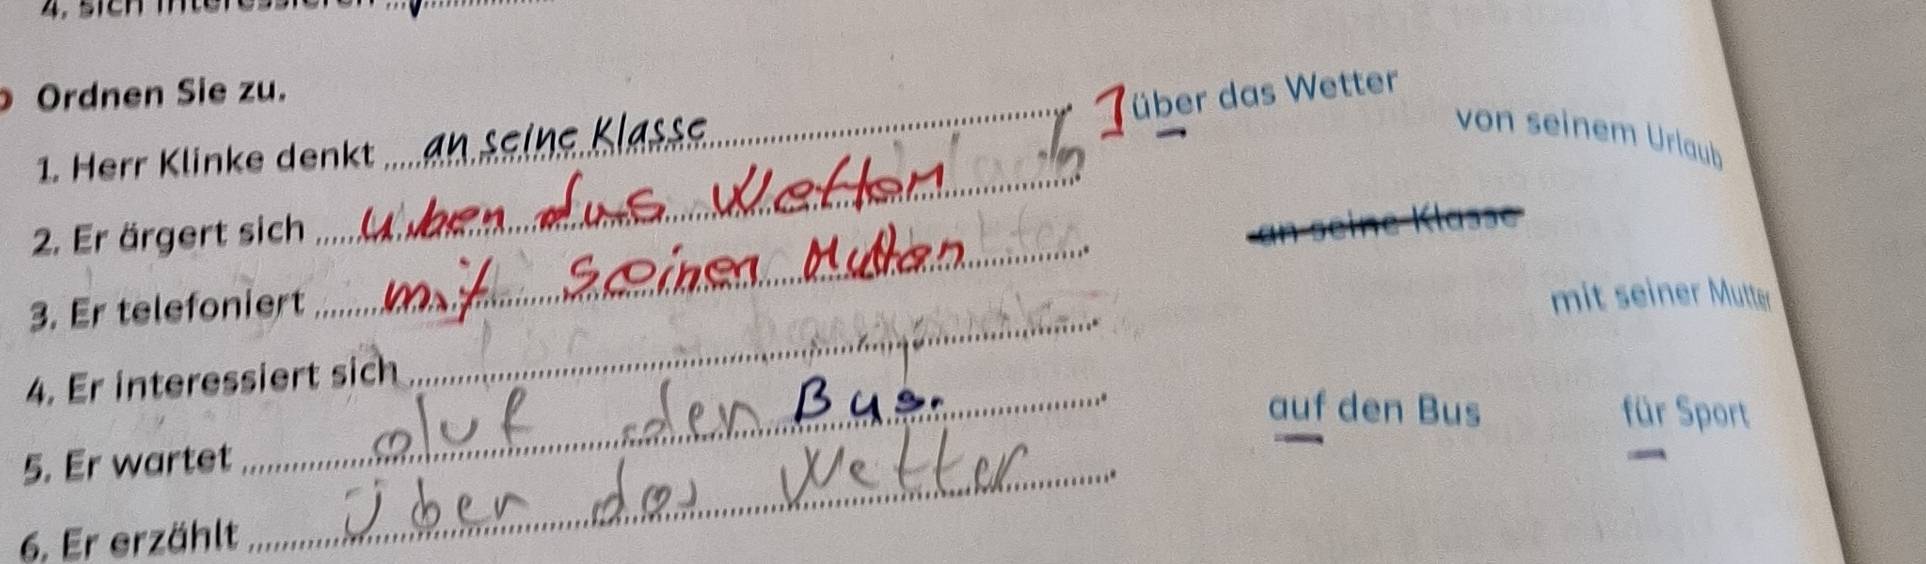 4. sich interessieren
Ordnen Sie zu.
1. Herr Klinke denkt an seine Klasse
2. Er ärgert sich über das Wetter
3. Er telefoniert mit seiner Mutter
4. Er interessiert sich
5. Er wartet auf den Bus.
6. Er erzählt über das Wetter
über das Wetter
von seinem Urlaub
an seine Klasse
mit seiner Mutter
auf den Bus
für Sport